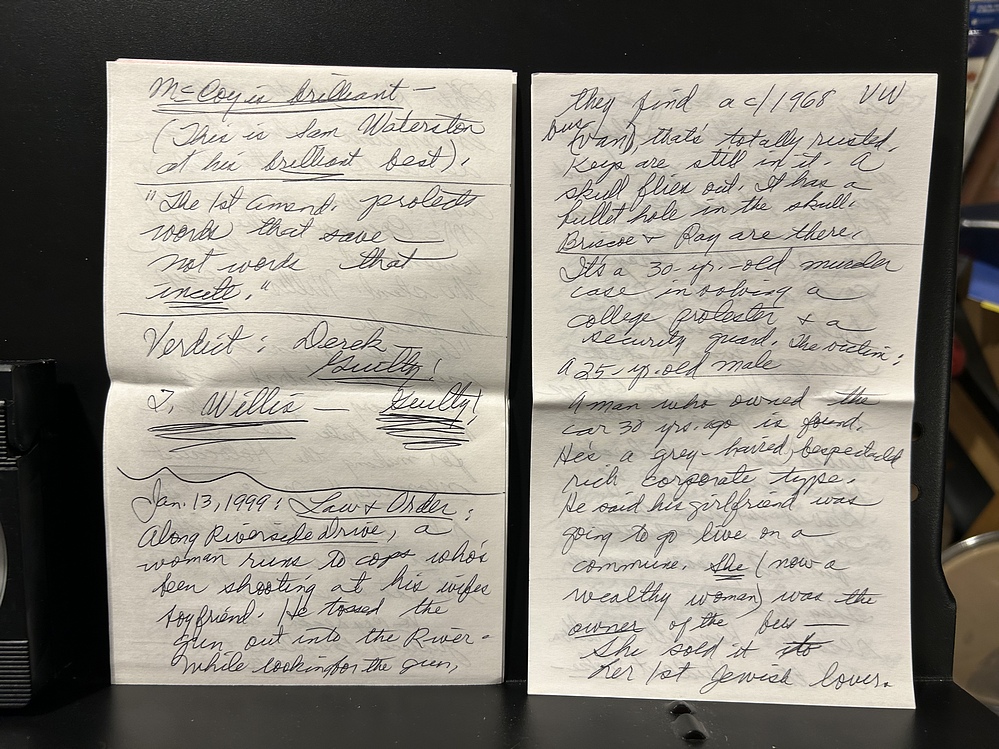 McCoy is brilliant —
(This is Sam Waterston
at his brilliant best).
"The 1st Amend. protects
words that save —
not words that
incite."
Verdict: Derek
Guilty!
T. Willis — Guilty!
Jan. 13, 1999: Law & Order:
Along Riverside Drive, a
woman runs to cops who's
been shooting at his wifes
boyfriend. He tossed the
gun out into the River -
While looking for the gun,
they find a c/1968 VW
bus
(van) that's totally rusted.
Keys are still in it. A
skull flies out. It has a
bullet hole in the skull.
Briscoe & Ray are there.
It's a 30-yr.-old murder
case involving a
college protester & a
security guard. The victim:
a 25-yr.-old male
A man who owned the
car 30 yrs. ago is found.
He's a grey-haired, bespectacled
rich corporate type.
He said his girlfriend was
going to go live on a
commune. She (now a
wealthy woman) was the
owner of the bus —
She sold it to
her 1st Jewish lover.